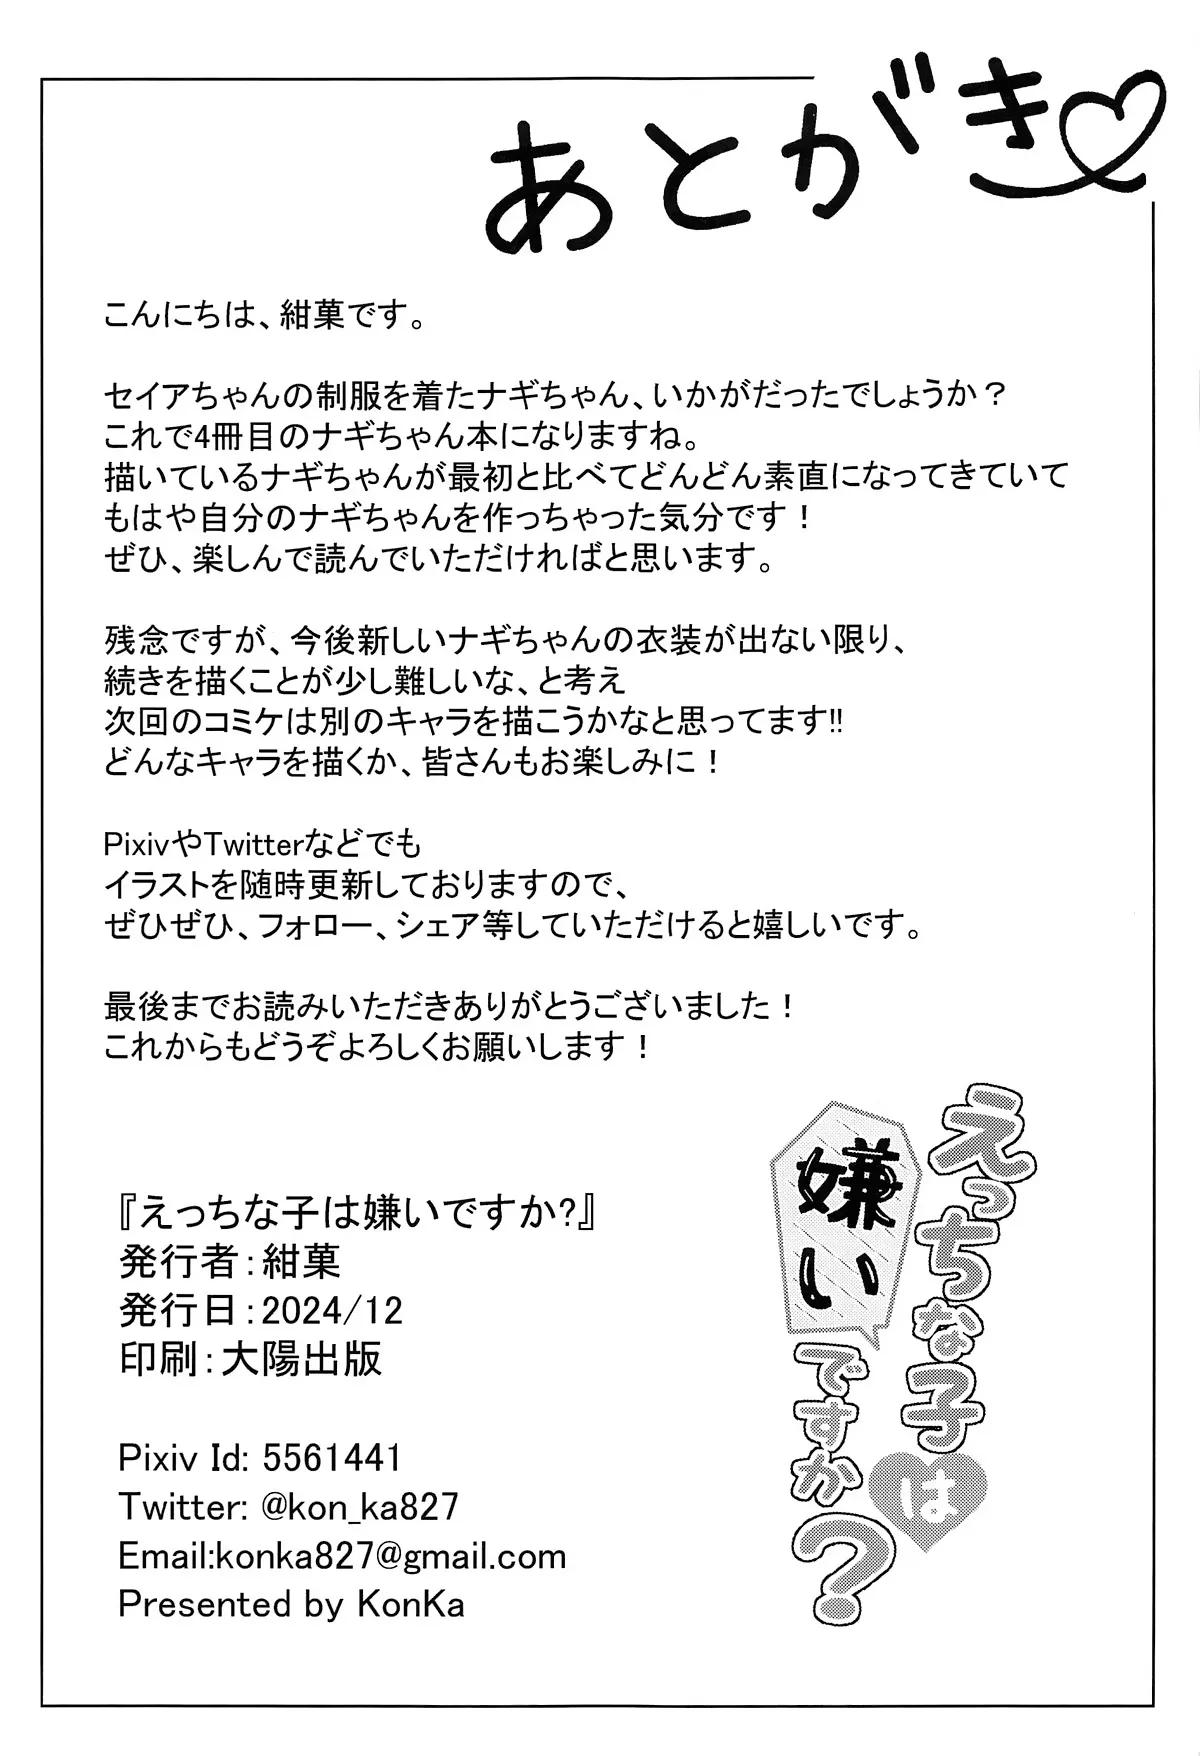 あとがき♡
こんにちは、紺菓です。
セイアちゃんの制服を着たナギちゃん、いかがだったでしょうか？
これで4冊目のナギちゃん本になりますね。
描いているナギちゃんが最初と比べてどんどん素直になってきていて
もはや自分のナギちゃんを作っちゃった気分です！
ぜひ、楽しんで読んでいただければと思います。
残念ですが、今後新しいナギちゃんの衣装が出ない限り、
続きを描くことが少し難しいな、と考え
次回のコミケは別のキャラを描こうかなと思ってます!!
どんなキャラを描くか、皆さんもお楽しみに！
PixivやTwitterなどでも
イラストを随時更新しておりますので、
ぜひぜひ、フォロー、シェア等していただけると嬉しいです。
最後までお読みいただきありがとうございました！
これからもどうぞよろしくお願いします！
『えっちな子は嫌いですか?』
発行者：紺菓
発行日：2024/12
印刷：大陽出版
Pixiv Id: 5561441
Twitter: @kon_ka827
Email:konka827@gmail.com
Presented by KonKa
えっちな子は
嫌いですか？